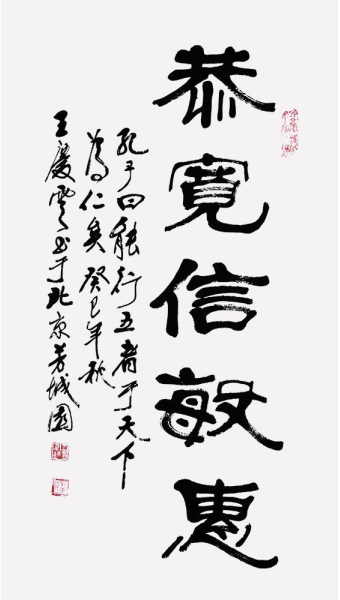 恭寬信敏惠
孔子曰能行五者于天下
為仁矣癸巳年秋
王慶雲书于北京芳城園